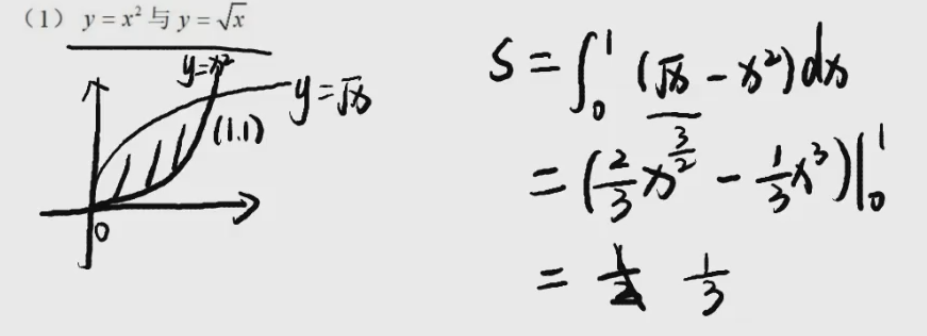 (1) y = x² 与 y = √x
y=x²
y=√x
(1.1)
0
S = ∫₀¹ (√x - x²)dx
= (2/3 x^(3/2) - 1/3 x³)|₀¹
= 1/3